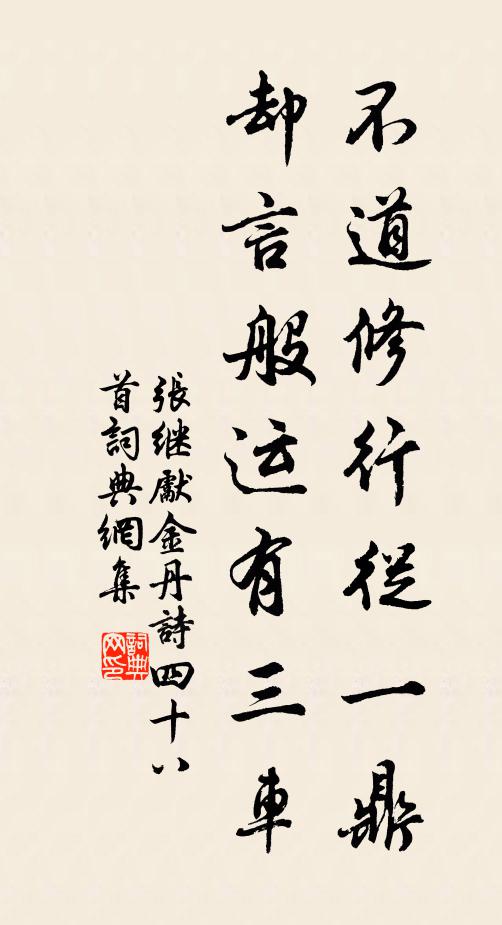 不道修行從一鼎
却言般运有三車
張继獻金丹詩四十八
首詞典網集
詞典网印